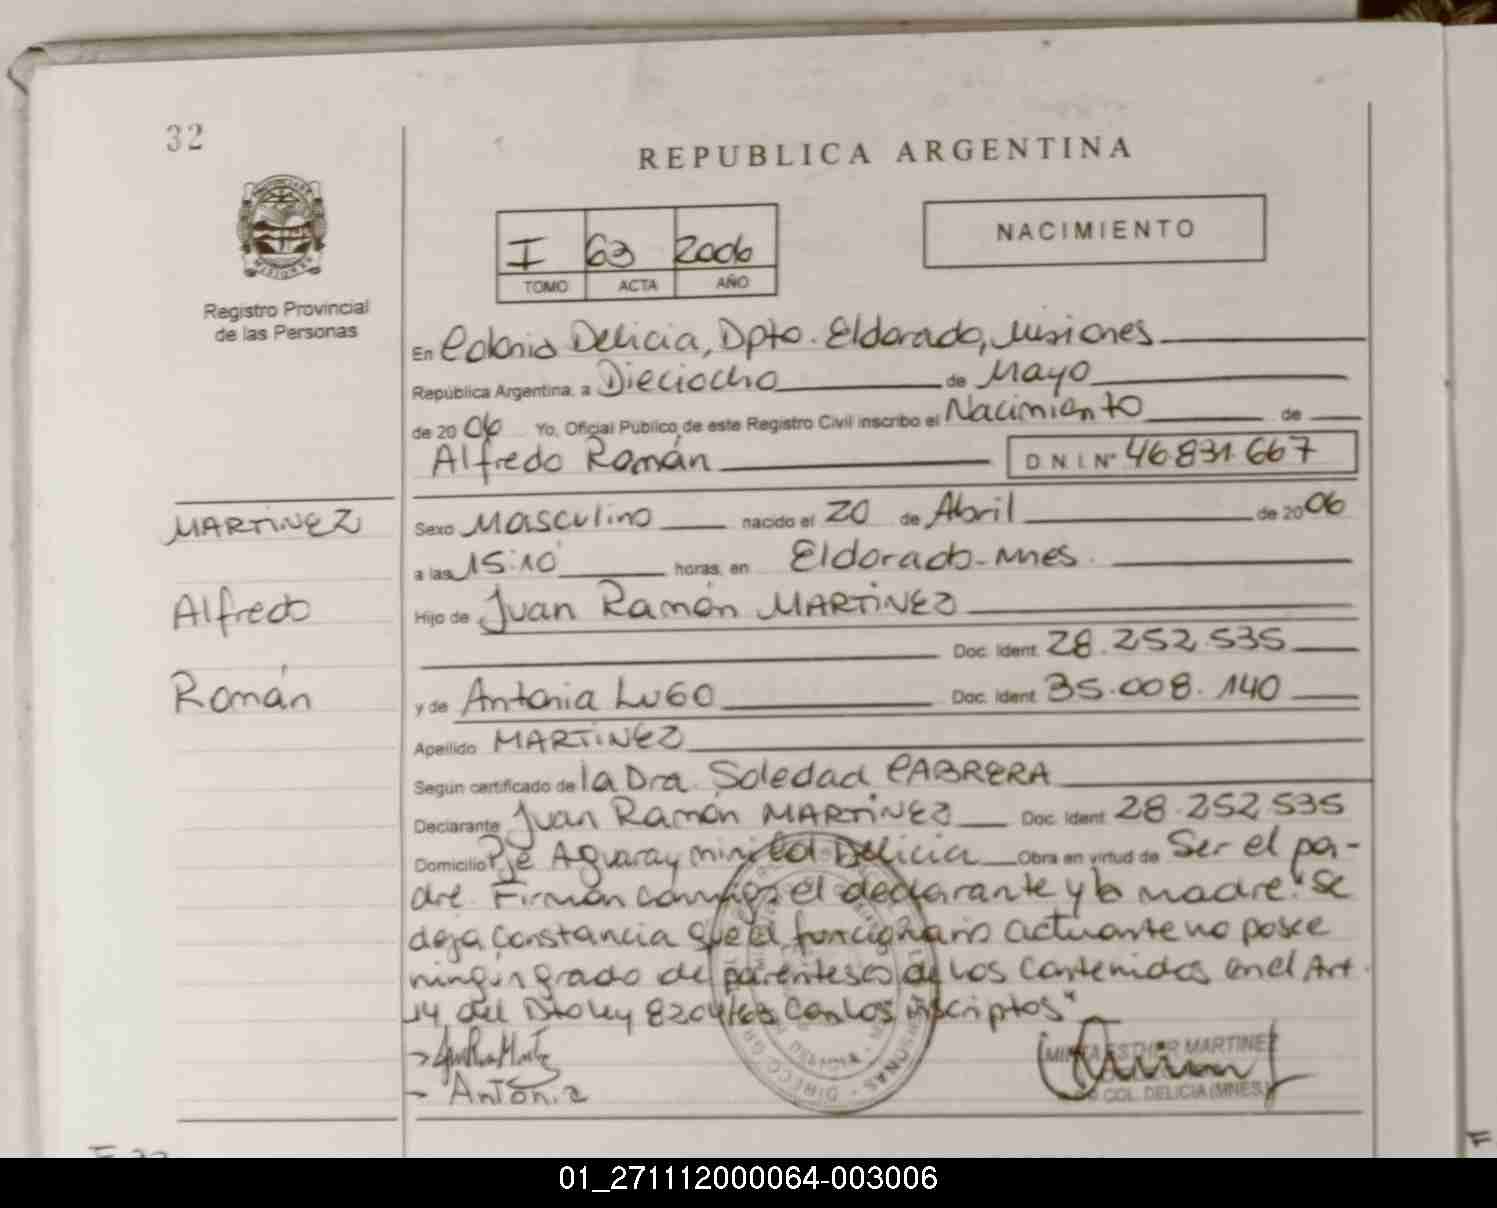 32
REPUBLICA ARGENTINA
PROVINCIA DE
MISIONES
Registro Provincial
de las Personas
I 63 2006
TOMO ACTA AÑO
NACIMIENTO
En Colonia Delicia, Dpto. Eldorado, Misiones
República Argentina, a Dieciocho de Mayo
de 2006 Yo, Oficial Publico de este Registro Civil inscribo el Nacimiento de
Alfredo Román D N I N° 46.831.667
MARTINEZ
Alfredo
Román
Sexo Masculino nacido el 20 de Abril de 2006
a las 15:10 horas, en Eldorado-Mnes.
Hijo de Juan Ramón MARTINEZ
Doc. Ident. 28.252.535
y de Antonia LUGO Doc. Ident. 35.008.140
Apellido MARTINEZ
Según certificado de la Dra. Soledad CABRERA
Declarante Juan Ramón MARTINEZ Doc. Ident. 28.252.535
Domicilio Pje Aguaray mini Col Delicia Obra en virtud de Ser el pa-
dre. Firman conmigo el declarante y la madre. "Se
deja constancia que el funcionario actuante no posee
ningún grado de parentesco de los contenidos en el Art.
14 del Dto ley 8204/63 con los inscriptos"
Antonia
MARTINEZ
COL. DELICIA (MNES)
01_271112000064-003006